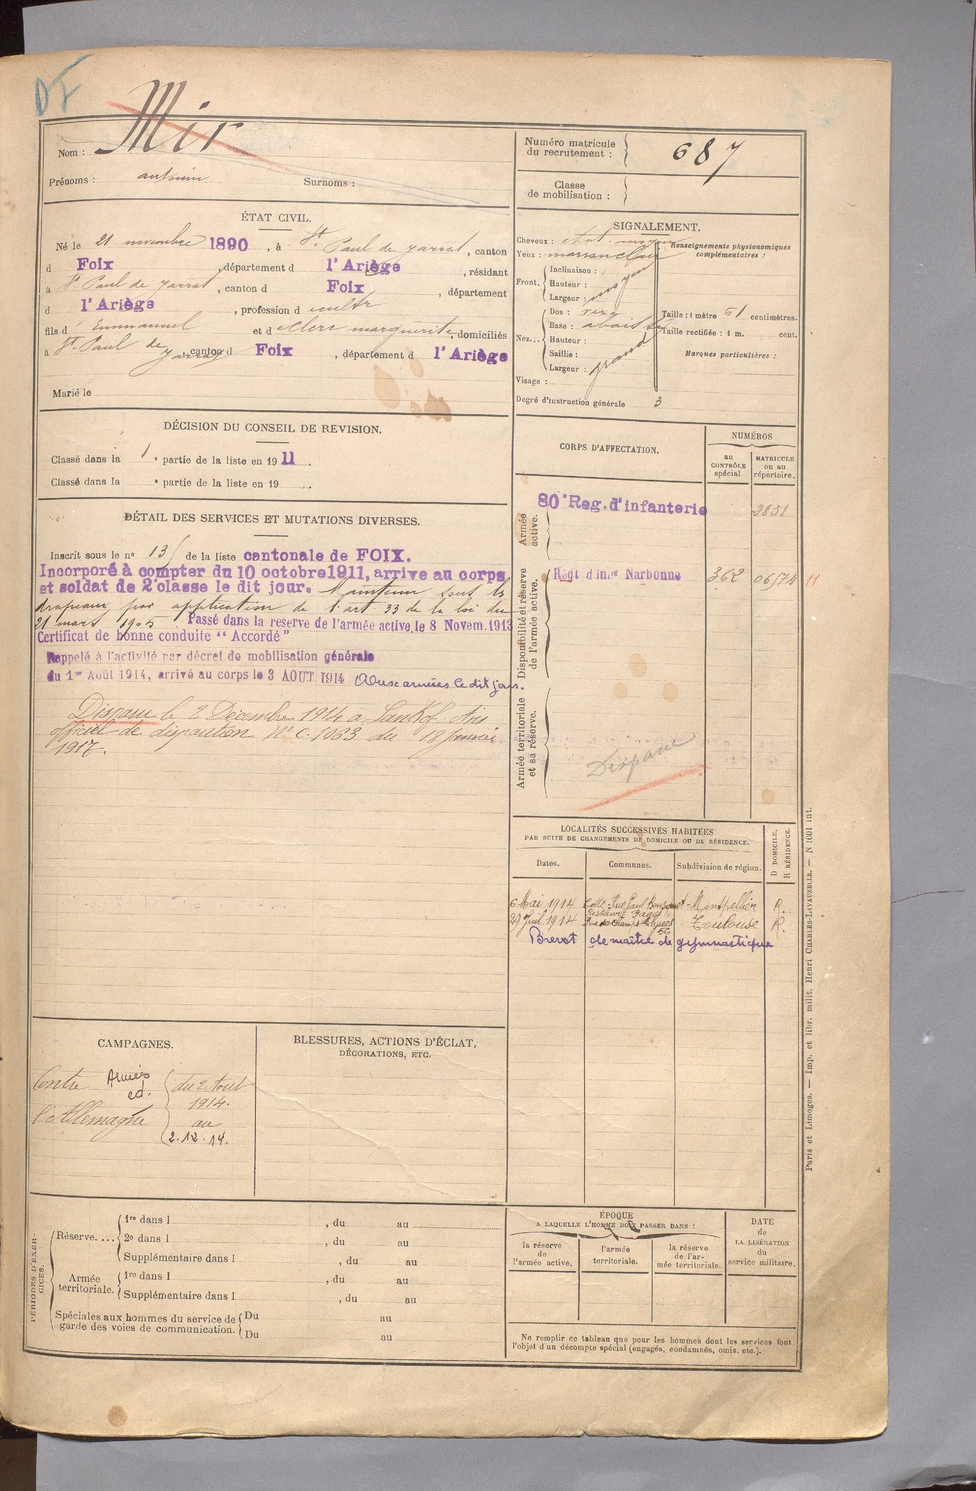 DF
Nom : Mir
Prénoms : antonin Surnoms :
ÉTAT CIVIL.
Né le 21 novembre 1890, à St. Paul de Jarrat, canton
d Foix, département d l'Ariège, résidant
à St. Paul de Jarrat, canton d Foix, département
d l'Ariège, profession d cultr
fils d' Emmanuel et d clerc marguerite, domiciliés
à St. Paul de Jarrat, canton d Foix, département d l'Ariège
Marié le
DÉCISION DU CONSEIL DE REVISION.
Classé dans la 1e partie de la liste en 1911.
Classé dans la e partie de la liste en 19 .
DÉTAIL DES SERVICES ET MUTATIONS DIVERSES.
Inscrit sous le n° 13 de la liste cantonale de FOIX.
Incorporé à compter du 10 octobre 1911, arrive au corps
et soldat de 2e classe le dit jour. Maintenu sous les
drapeaux par application de l'art 33 de la loi du
21 mars 1905 Passé dans la reserve de l'armée active, le 8 Novem. 1913
Certificat de bonne conduite "Accordé"
Rappelé à l'activité par décret de mobilisation générale
du 1er Août 1914, arrivé au corps le 3 AOUT 1914 Aux armées le dit jour.
Disparu le 2 Décembre 1914 a Avis
officiel de disparition N° C. 1063 du 18 Janvier
1917.
CAMPAGNES.
Contre Armées du 2 Aout
l'Allemagne 1914.
au
2.12.14.
BLESSURES, ACTIONS D'ÉCLAT,
DÉCORATIONS, ETC.
PÉRIODES D'EXERCICES.
Réserve.... 1re dans l , du au
2e dans l , du au
Supplémentaire dans l , du au
Armée territoriale. 1re dans l , du au
Supplémentaire dans l , du au
Spéciales aux hommes du service de Du au
garde des voies de communication. Du au
Numéro matricule
du recrutement : 687
Classe
de mobilisation :
SIGNALEMENT.
Cheveux : chat. moyen
Yeux : marron clair
Front. Inclinaison :
Hauteur : moyen
Largeur :
Nez... Dos :
Base :
Hauteur :
Saillie : grand
Largeur :
Visage :
Degré d'instruction générale 3
Renseignements physionomiques
complémentaires :
Taille : 1 mètre 61 centimètres.
Taille rectifiée : 1 m. cent.
Marques particulières :
CORPS D'AFFECTATION.
NUMÉROS
au CONTRÔLE spécial.
MATRICULE ou au répertoire.
Armée active.
80e Reg. d'infanterie 2851
Disponibilité et réserve de l'armée active.
Régt d'Inrie Narbonne 362 06/74 11
Armée territoriale et sa réserve.
Disparu
LOCALITÉS SUCCESSIVES HABITÉES
PAR SUITE DE CHANGEMENTS DE DOMICILE OU DE RÉSIDENCE.
Dates. Communes. Subdivision de région.
D DOMICILE, R RÉSIDENCE.
6 Mai 1914 Cette Rue Paul Montpellier R.
29 Juil 1914 Toulouse R.
Brevet de maître de gymnastique
ÉPOQUE
A LAQUELLE L'HOMME DOIT PASSER DANS :
la réserve de l'armée active.
l'armée territoriale.
la réserve de l'armée territoriale.
DATE de LA LIBÉRATION du service militaire.
Ne remplir ce tableau que pour les hommes dont les services font
l'objet d'un décompte spécial (engagés, condamnés, omis, etc.).
Paris et Limoges. — Imp. et libr. milit. Henri CHARLES-LAVAUZELLE. — N 1601 int.